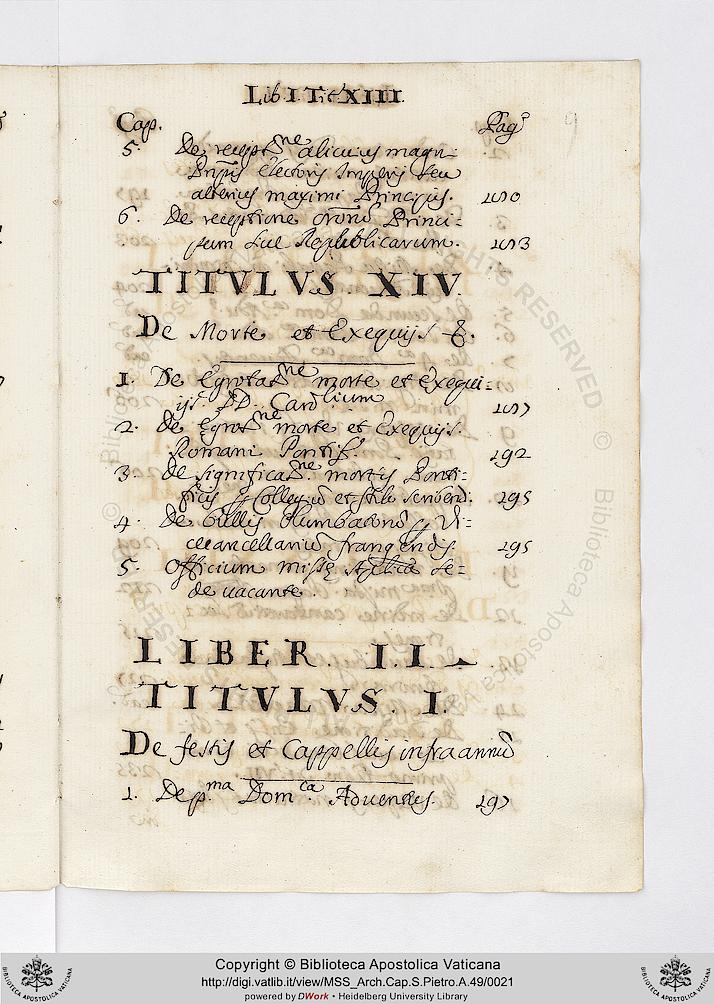 Lib I Tit XIII.
Cap. Pag.
5. De recept.ne alicuius magni
Prīpis Electoris Imperij seu
alterius maximi Principis. 180
6. De receptione oronū Princi-
pum sive Republicarum. 183
TITVLVS XIV.
De Morte et Exequijs &.
1. De Egrotat.ne morte et exequi-
ijs DD. Cardlium 187
2. de Egrot.ne morte et Exequijs.
Romani Pontif. 192
3. de significat.ne mortis Ponti-
ficis Collegiū et stilo scribend. 195
4. De bullis plumbatorū Vi-
cecancellariū frangendis. 195
5. Officium missę Aplica se-
de vacante.
LIBER. II.
TITVLVS. I.
De festis et Cappellis infra annū
1. De p.ma Dom.ca Aduentus. 197
9
RIGHTS RESERVED ©
© Biblioteca Apostolica
Copyright © Biblioteca Apostolica Vaticana
http://digi.vatlib.it/view/MSS_Arch.Cap.S.Pietro.A.49/0021
powered by DWork • Heidelberg University Library
BIBLIOTECA APOSTOLICA VATICANA
BIBLIOTECA APOSTOLICA VATICANA